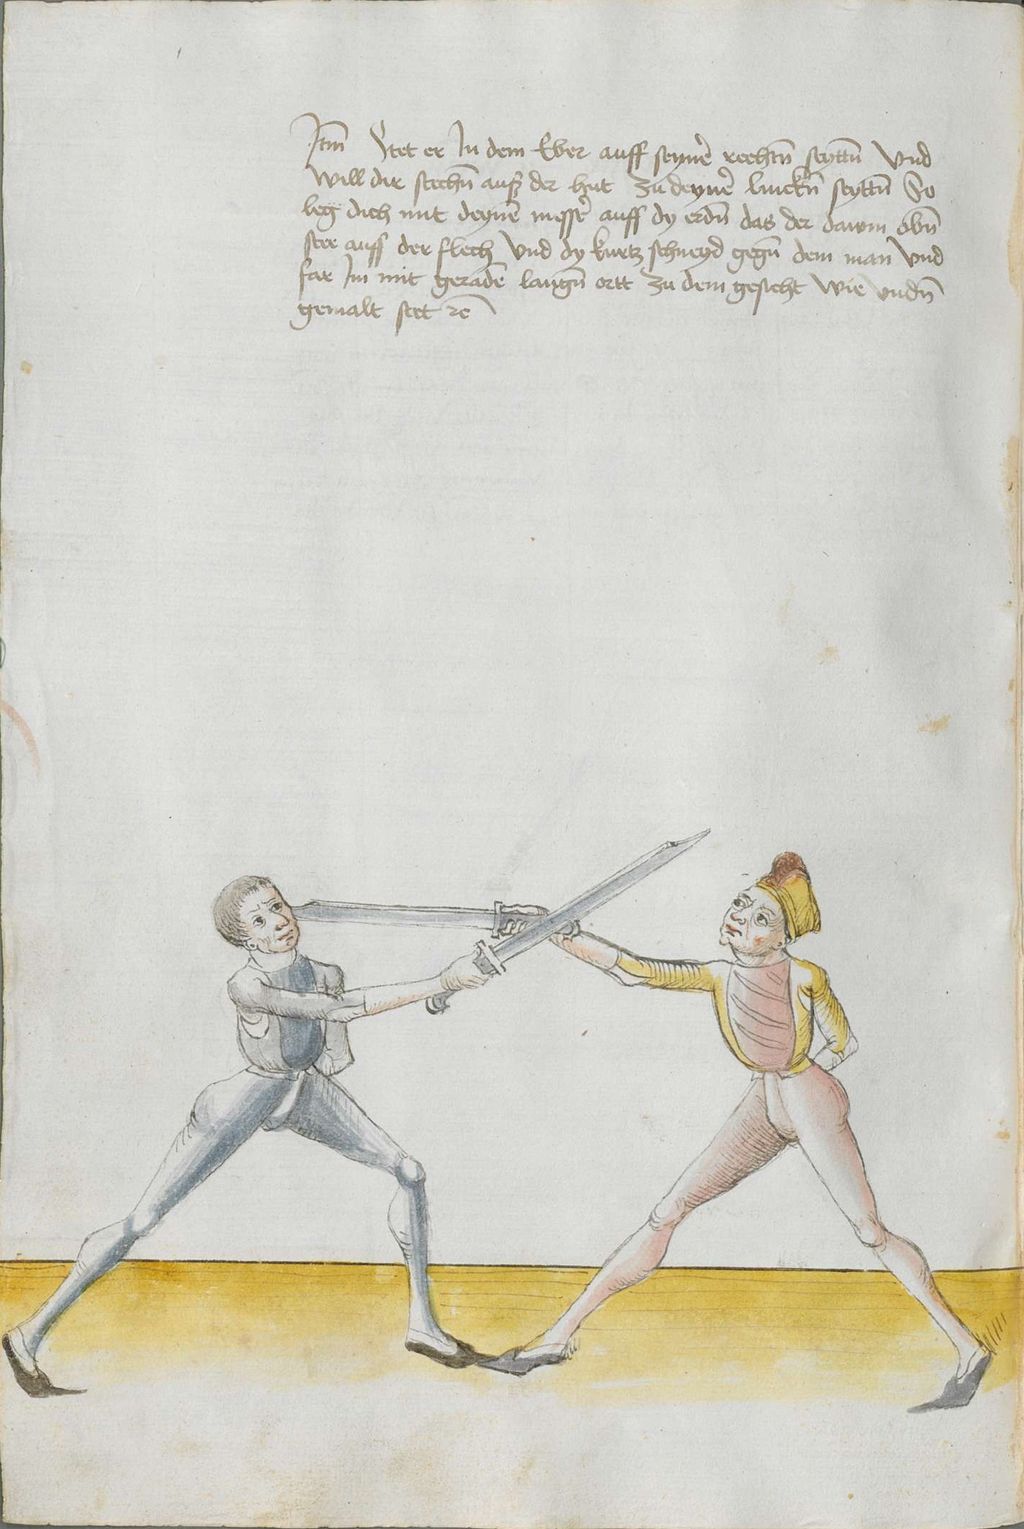 Itm̄ Stet er In dem Eber auff seynē rechtn̄ seyttn̄ Vnd
will dir stechn̄ auß der hut zu deynē linckn̄ seyttn̄ So
leg dich mit deynē messē auff dy erdn̄ das der dawm obn̄
stee auff der flech Vnd dy kurtz schneyd gegn̄ dem man Vnd
far Im mit geradē langn̄ ortt zu dem gesicht wie vndn̄
gemalt stet ꝛc